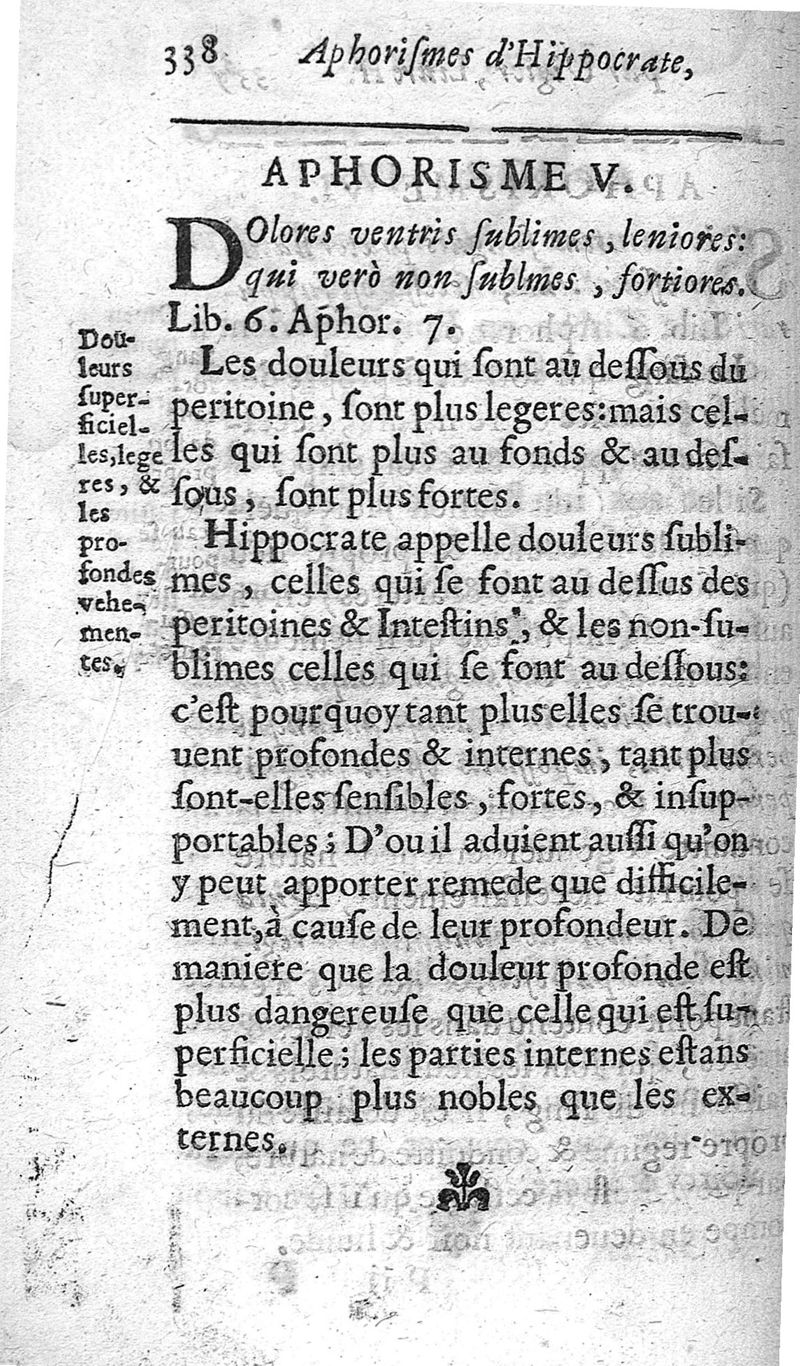 338 Aphoriſmes d'Hippocrate,
APHORISME V.
DOlores ventris ſublimes, leniores:
qui verò non ſublmes, fortiores.
Lib. 6. Aphor. 7.
Les douleurs qui ſont au deſſous du
peritoine, ſont plus legeres: mais cel-
les qui ſont plus au fonds & au deſ-
ſous, ſont plus fortes.
Hippocrate appelle douleurs ſubli-
mes, celles qui ſe font au deſſus des
peritoines & Inteſtins, & les non-ſu-
blimes celles qui ſe font au deſſous:
c'eſt pourquoy tant plus elles ſe trou-
uent profondes & internes, tant plus
ſont-elles ſenſibles, fortes, & inſup-
portables; D'ou il aduient auſſi qu'on
y peut apporter remede que difficile-
ment, à cauſe de leur profondeur. De
maniere que la douleur profonde eſt
plus dangereuſe que celle qui eſt ſu-
perficielle; les parties internes eſtans
beaucoup plus nobles que les ex-
ternes.
Dou-
leurs
ſuper-
ficiel-
les, lege
res, &
les
pro-
fondes
vehe-
men-
tes.